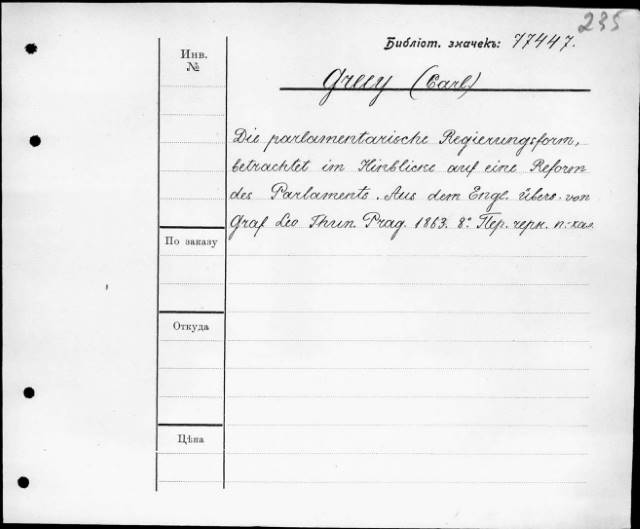 235
Библіот. значекъ: 77447.
Инв.
№
Grey (Carl)
Die parlamentarische Regierungsform,
betrachtet im Hinblicke auf eine Reform
des Parlaments. Aus dem Engl. übers. von
Graf Leo Thun. Prag. 1863. 8º. Пер. черн. п.-кал.
По заказу
Откуда
Цѣна